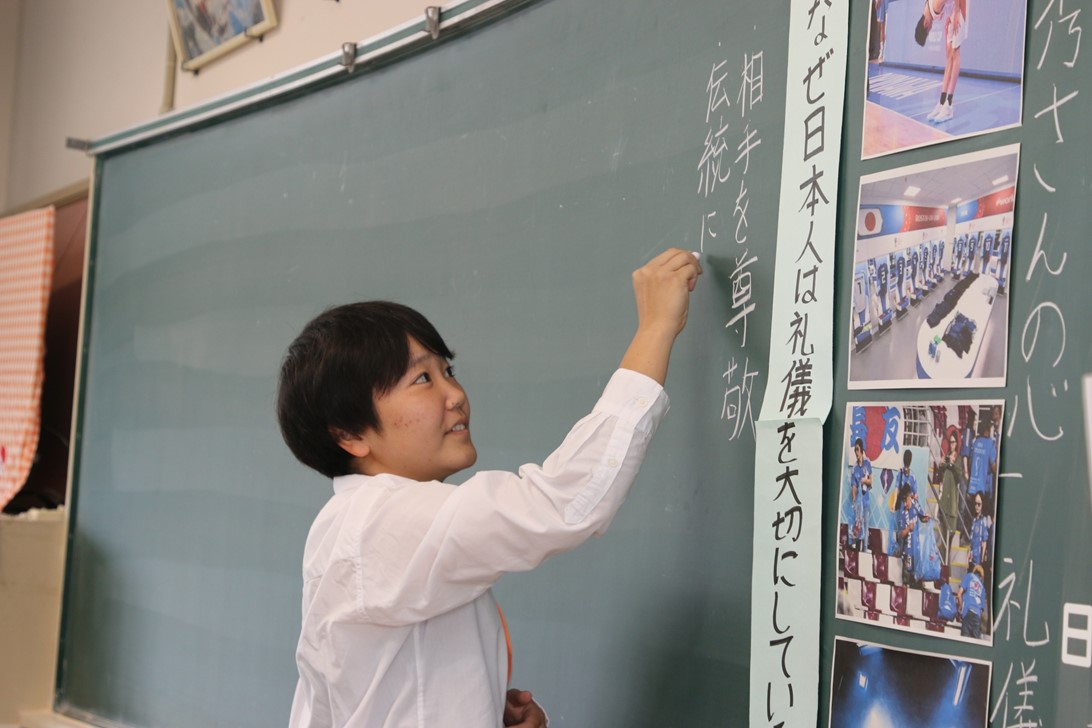 秀さんの心
一 礼儀
日
なぜ日本人は礼儀を大切にしてい
相手を尊敬
伝統に